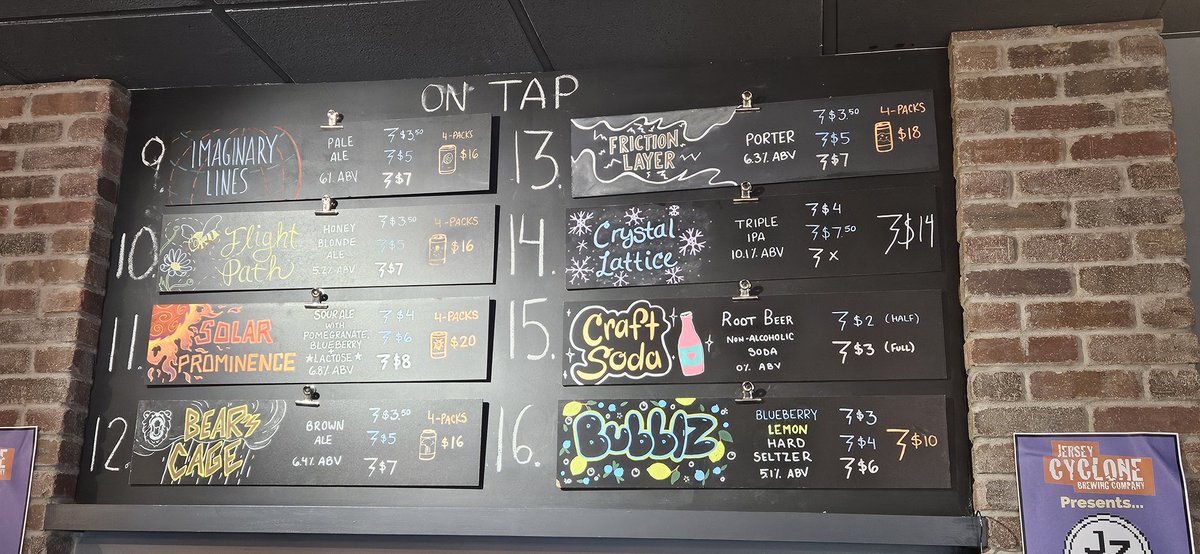 ON TAP
9.
IMAGINARY
LINES
PALE
ALE
6% ABV
$3.50
$5
$7
4-PACKS
$16
10.
Flight
Path
HONEY
BLONDE
ALE
5.2% ABV
$3.50
$5
$7
4-PACKS
$16
11.
SOLAR
PROMINENCE
SOUR ALE
WITH
POMEGRANATE
BLUEBERRY
+
★LACTOSE★
6.8% ABV
$4
$6
$8
4-PACKS
$20
12.
BEAR'S
CAGE
BROWN
ALE
6.4% ABV
$3.50
$5
$7
4-PACKS
$16
13.
FRICTION
LAYER
PORTER
6.3% ABV
$3.50
$5
$7
4-PACKS
$18
14.
Crystal
Lattice
TRIPLE
IPA
10.1% ABV
$4
$7.50
x
$14
15.
Craft
Soda
ROOT BEER
NON-ALCOHOLIC
SODA
0% ABV
$2 (HALF)
$3 (FULL)
16.
Bubblz
BLUEBERRY
LEMON
HARD
SELTZER
5.1% ABV
$3
$4
$6
$10
JERSEY
CYCLONE
BREWING COMPANY
Presents...